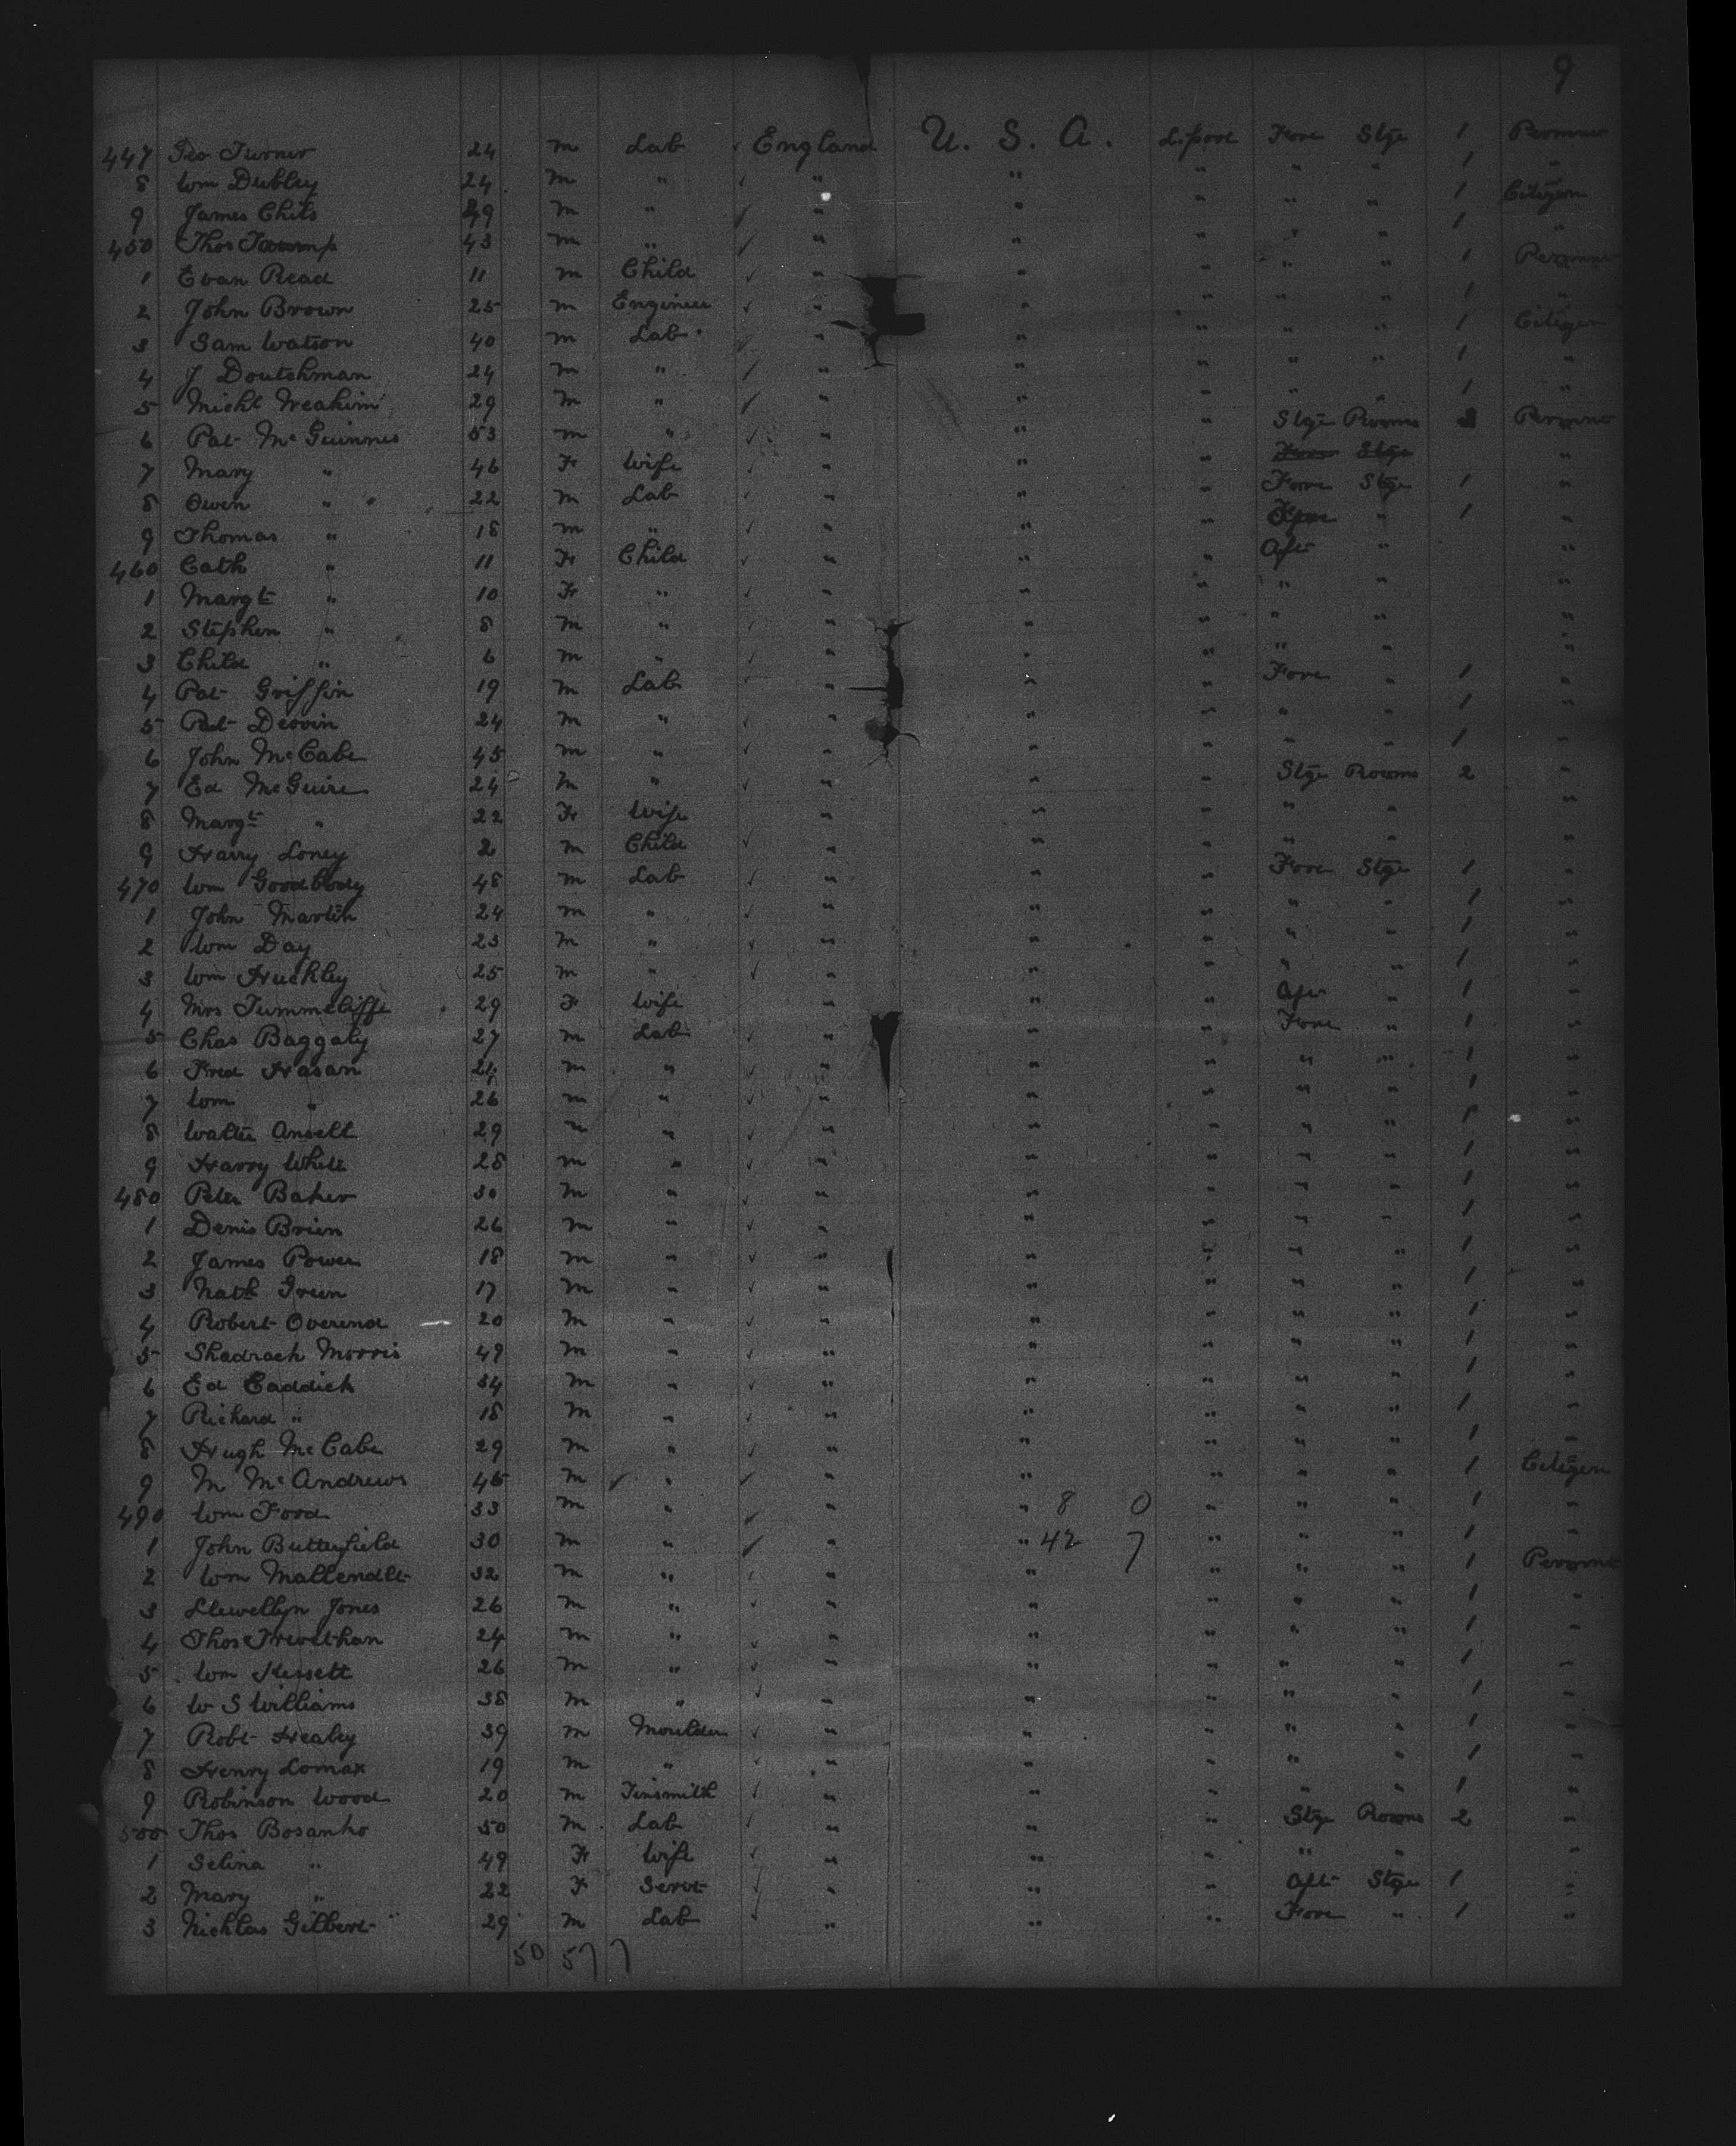 9
447 Geo Turner 24 m Lab England U. S. A. L.pool Fore Stge 1 Permnt
8 Wm Dubley 24 m " " " " " " 1 "
9 James Chits 49 m " " " " " " 1 Citizen
450 Thos 43 m " " " " " " 1 "
1 Evan Read 11 m Child " " " " " 1 Permnt
2 John Brown 25 m Engineer " " " " " 1 "
3 Sam Watson 40 m Lab " " " " " 1 Citizen
4 J Doutchman 24 m " " " " " " 1 "
5 Michl 29 m " " " " " " 1 "
6 Pat McGuinnes 53 m " " " " Stge Rooms Permnt
7 Mary " 46 Fe Wife " " " Fore Stge "
8 Owen " 22 m Lab " " " Fore Stge 1 "
9 Thomas " 18 m " " " " Fore " 1 "
460 Cath " 11 Fe Child " " " Aft " "
1 Margt " 10 Fe " " " " " " "
2 Stephen " 8 m " " " " " " "
3 Child " 6 m " " " " " " "
4 Pat Griffin 19 m Lab " " " Fore " 1 "
5 Pat Dervin 24 m " " " " " " 1 "
6 John McCabe 45 m " " " " " " 1 "
7 Ed McGuire 24 m " " " " Stge Rooms 2 "
8 Margt " 22 Fe Wife " " " " " "
9 Harry Loney 2 m Child " " " " " "
470 Wm Goodbody 48 m Lab " " " Fore Stge 1 "
1 John Martin 24 m " " " " " " 1 "
2 Wm Day 23 m " " " " " " 1 "
3 Wm Huckley 25 m " " " " " " 1 "
4 Mrs Tummcliffe 29 F Wife " " " Aft " 1 "
5 Chas Baggaly 27 m Lab " " " Fore " 1 "
6 Fred Hasan 24 m " " " " " " 1 "
7 Wm " 26 m " " " " " " 1 "
8 Walter Ansell 29 m " " " " " " 1 "
9 Harry White 28 m " " " " " " 1 "
480 Peter Baker 30 m " " " " " " 1 "
1 Denis Brien 26 m " " " " " " 1 "
2 James Power 18 m " " " " " " 1 "
3 Nath Green 17 m " " " " " " 1 "
4 Robert Overend 20 m " " " " " " 1 "
5 Shadrach Morris 49 m " " " " " " 1 "
6 Ed Caddick 34 m " " " " " " 1 "
7 Richard " 18 m " " " " " " 1 "
8 Hugh McCabe 29 m " " " " " " 1 "
9 M McAndrews 45 m " " " " " " 1 Citizen
490 Wm Ford 33 m " " " 8 0 " " " 1 "
1 John Butterfield 30 m " " " 42 7 " " " 1 "
2 Wm Mallendett 32 m " " " " " " 1 Permnt
3 Llewellyn Jones 26 m " " " " " " 1 "
4 Thos Trevethan 24 m " " " " " " 1 "
5 Wm Kessell 26 m " " " " " " 1 "
6 W S Williams 38 m " " " " " " 1 "
7 Robt Healey 39 m Moulder " " " " " 1 "
8 Henry Lomax 19 m " " " " " " 1 "
9 Robinson Wood 20 m Tinsmith " " " " " 1 "
500 Thos Bosanko 50 m Lab " " " Stge Rooms 2 "
1 Selina " 49 Fe Wife " " " " " "
2 Mary " 22 F Servt " " " Aft Stge 1 "
3 Nichlas Gilbert 29 m Lab " " " Fore " 1 "
50 57 7